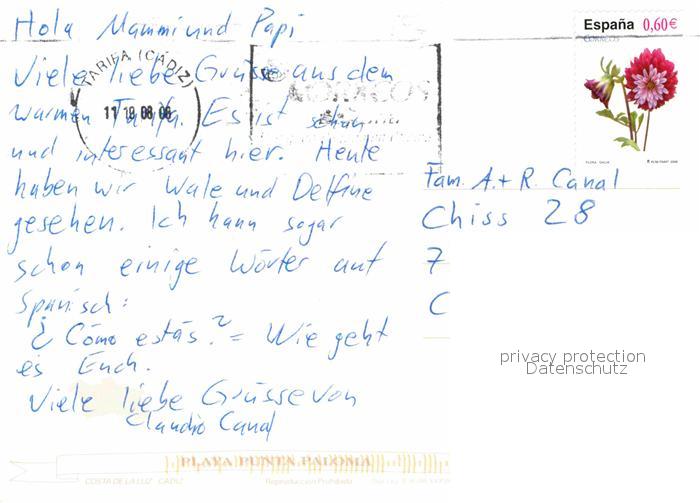 Hola Mammi und Papi
Viele liebe Grüsse aus dem
warmen Tarifa. Es ist schön
und interessant hier. Heute
haben wir Wale und Delfine
gesehen. Ich kann sogar
schon einige Wörter auf
Spanisch:
¿Cómo estás? = Wie geht
es Euch.
Viele liebe Grüsse von
Claudio Canal
TARIFA (CÁDIZ)
España 0,60€
CORREOS
FLORA DALIA
Fam. A. + R. Canal
Chiss 28
7
C
privacy protection
Datenschutz
PLAYA PUNTA PALOMA
COSTA DE LA LUZ CÁDIZ
Reproducción Prohibida